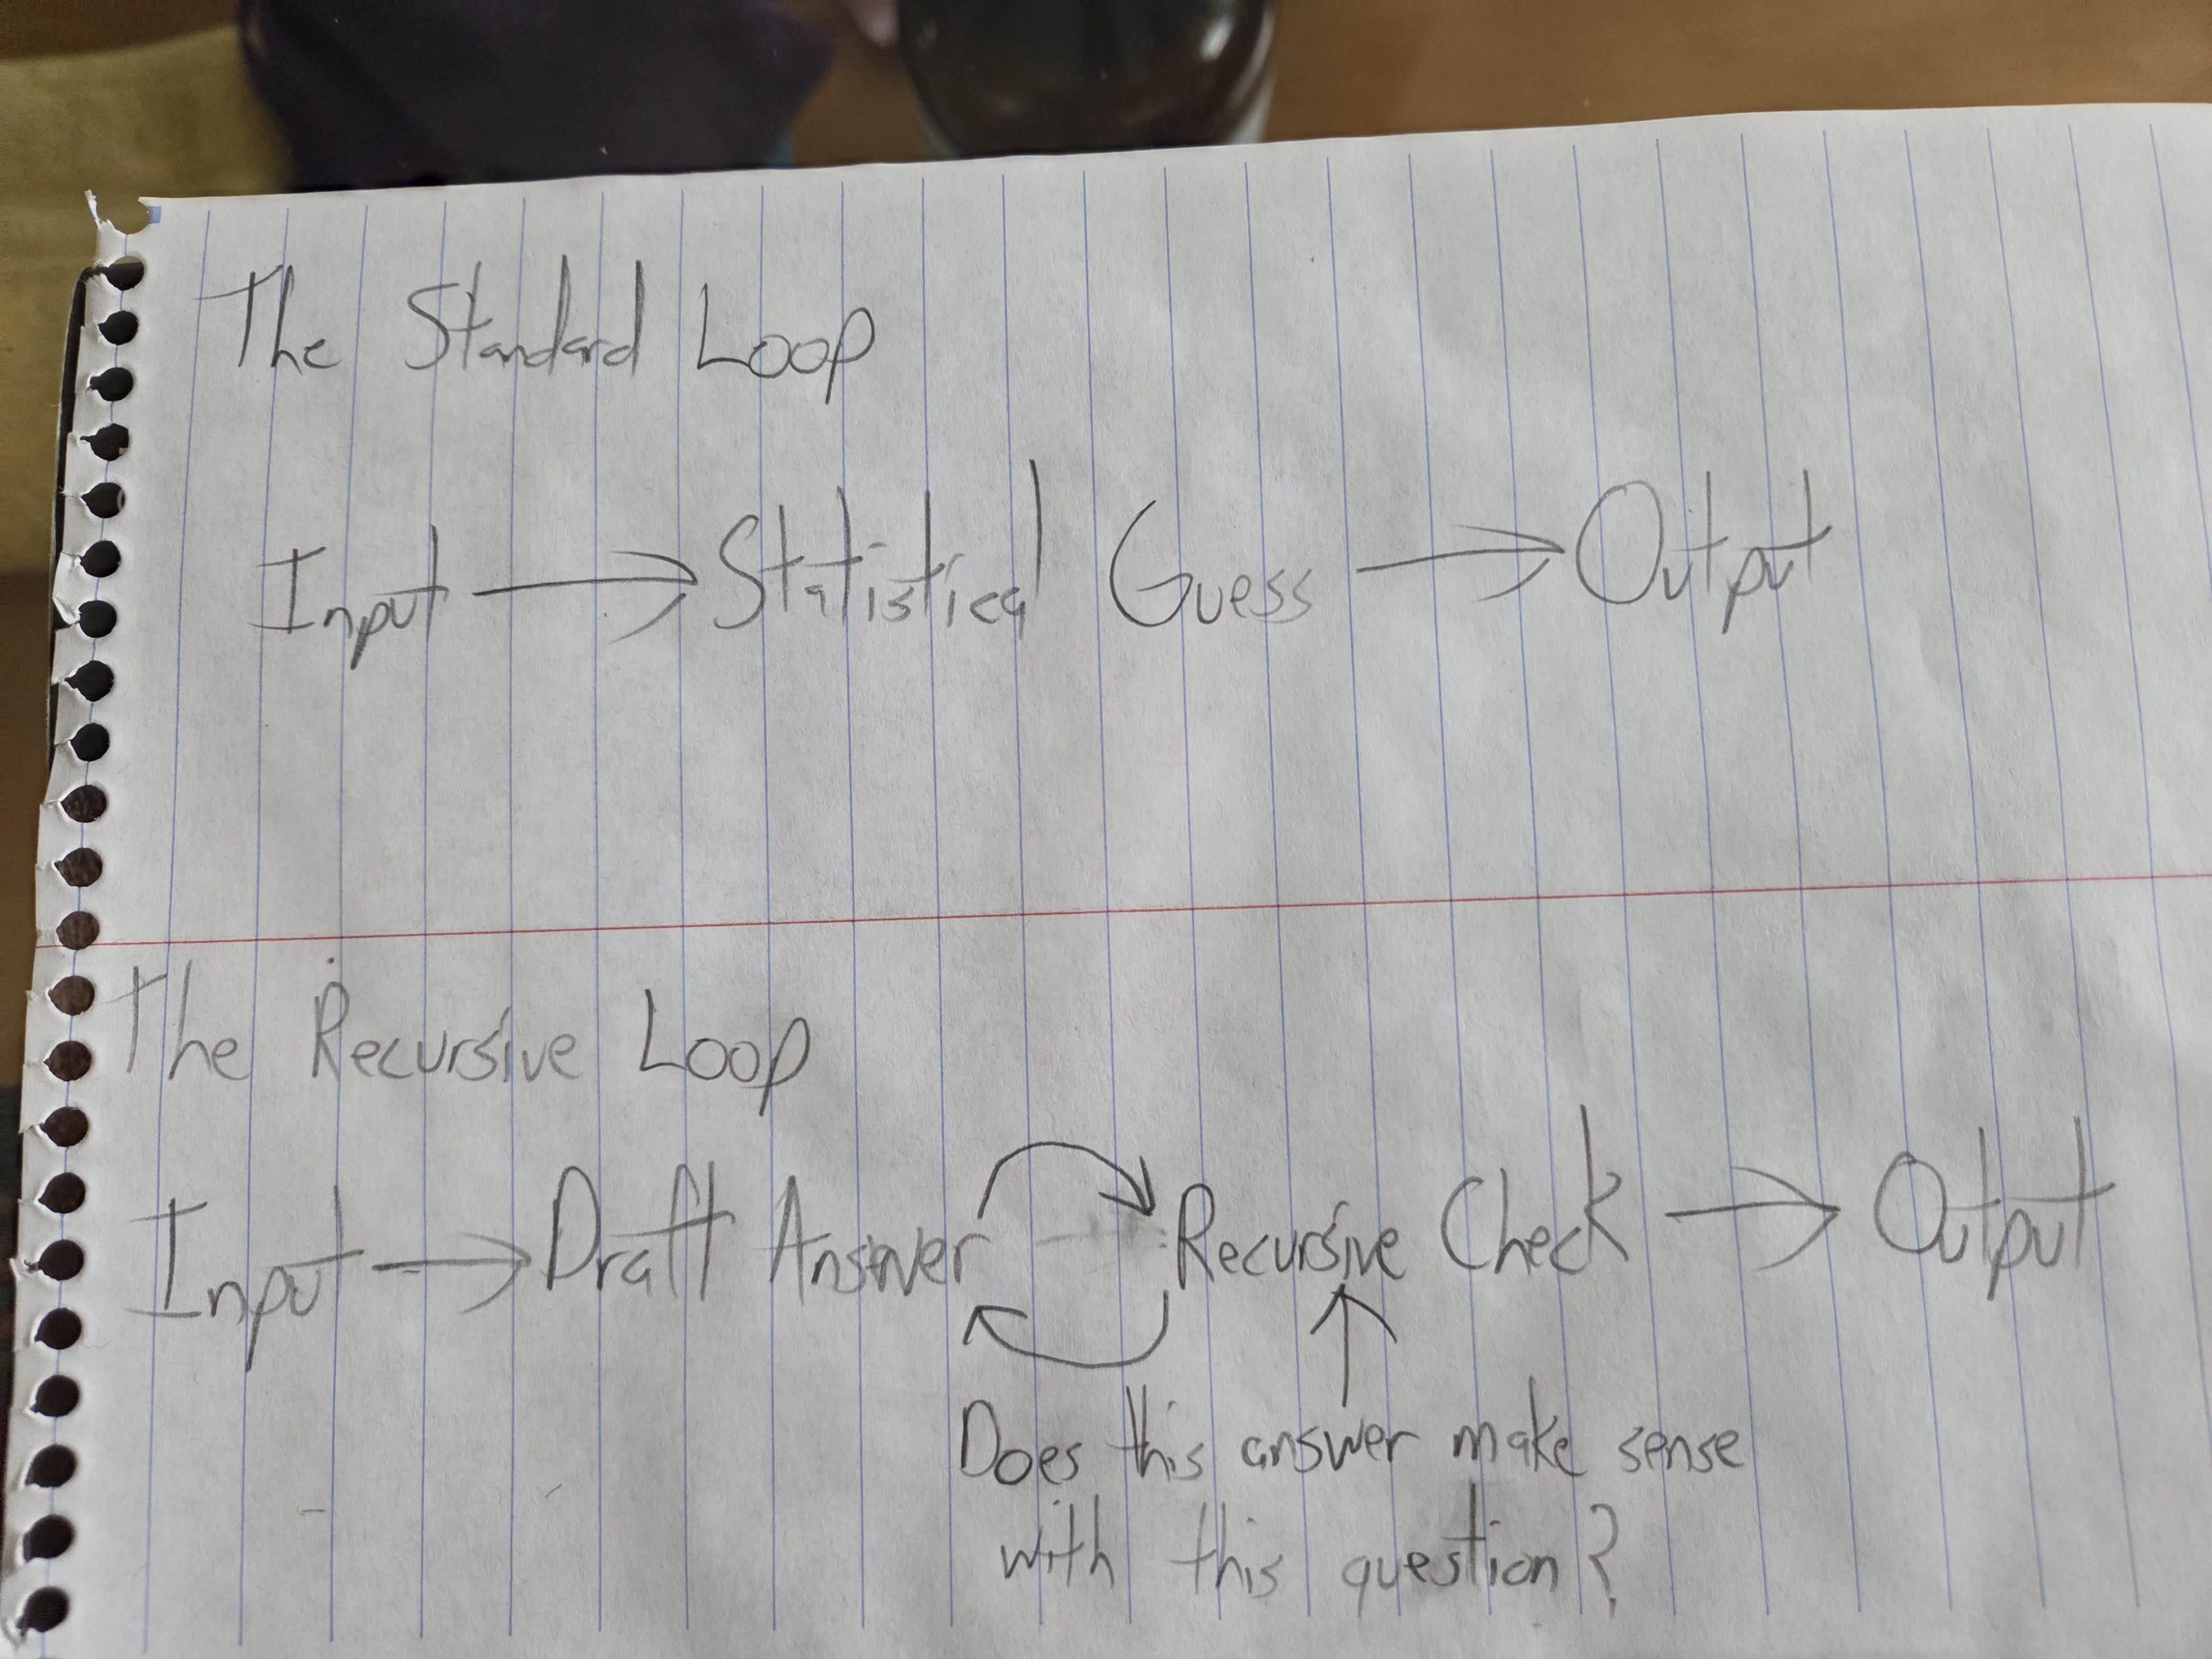 The Standard Loop
Input → Statistical Guess → Output
The Recursive Loop
Input → Draft Answer Recursive Check → Output
Does this answer make sense
with this question?